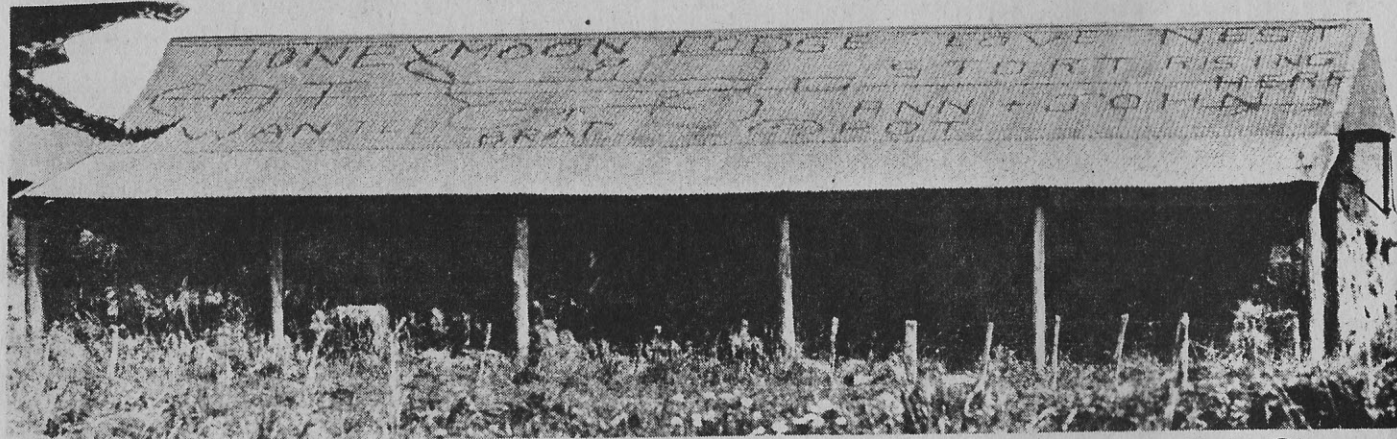 HONEYMOON LODGE LOVE NEST
START RISING
HERE
COT
ANN + JOHN
WANTED BRAT